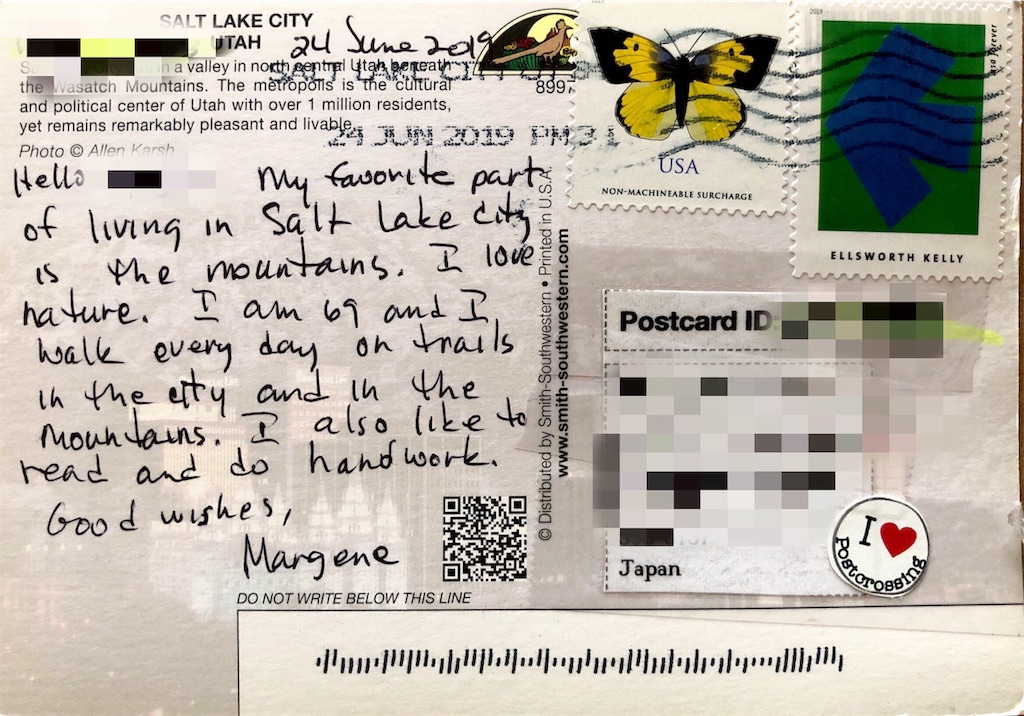 SALT LAKE CITY
UTAH
24 June 2019
is in a valley in north central Utah beneath
the Wasatch Mountains. The metropolis is the cultural
and political center of Utah with over 1 million residents,
yet remains remarkably pleasant and livable.
Photo © Allen Karsh
8997
SALT LAKE CITY
24 JUN 2019 PM 3 L
Hello My favorite part
of living in Salt Lake City
is the mountains. I love
nature. I am 69 and I
walk every day on trails
in the city and in the
mountains. I also like to
read and do handwork.
Good wishes,
Margene
DO NOT WRITE BELOW THIS LINE
© Distributed by Smith-Southwestern • Printed in U.S.A.
www.smith-southwestern.com
USA
NON-MACHINEABLE SURCHARGE
2019
usa forever
ELLSWORTH KELLY
Postcard ID:
Japan
I
Postcrossing